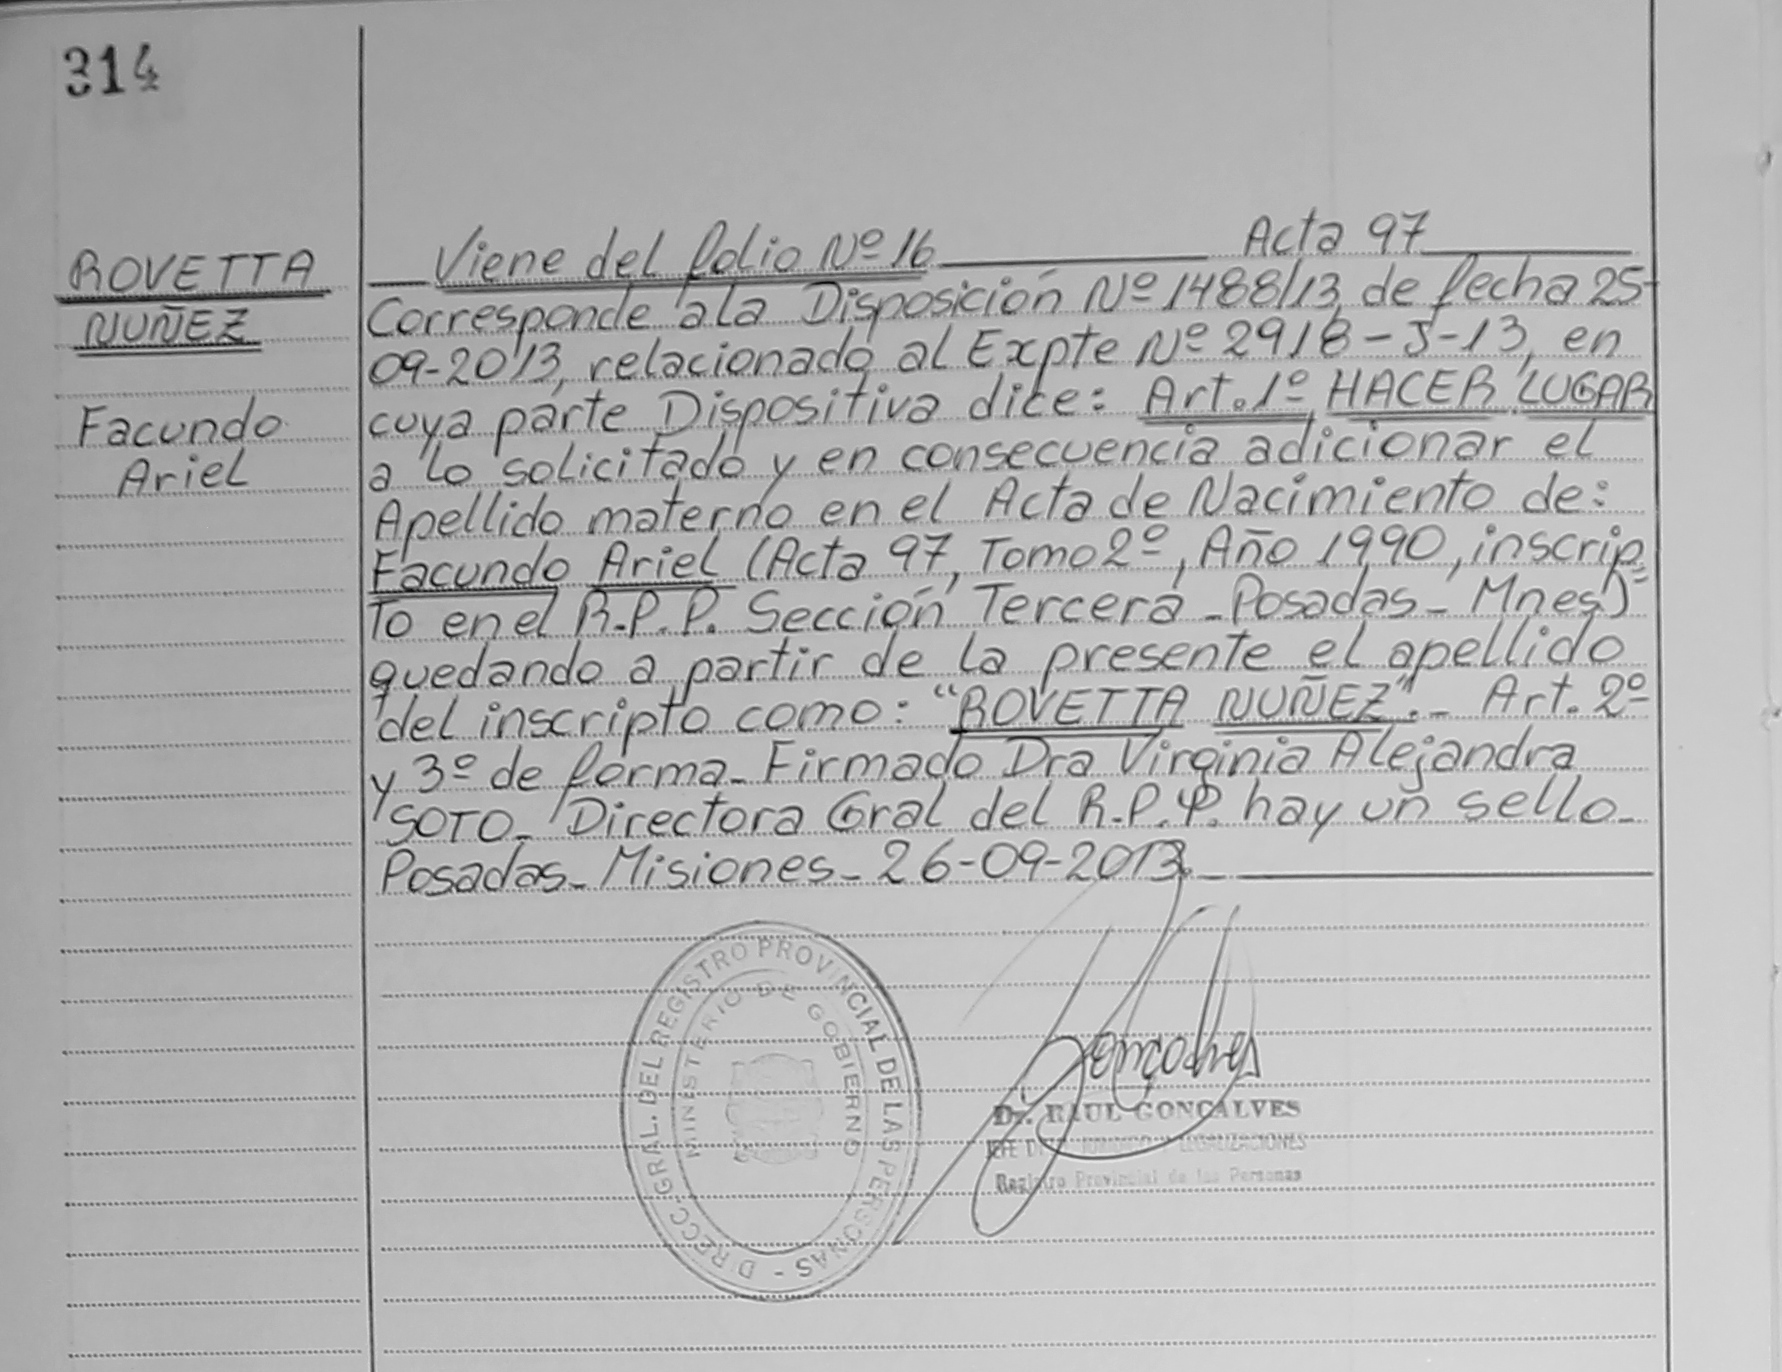 314
ROVETTA
NUÑEZ
Facundo
Ariel
Viene del folio Nº 16 Acta 97
Corresponde a la Disposición Nº 1488/13, de fecha 25-
09-2013, relacionado al Expte Nº 2918-J-13, en
cuya parte Dispositiva dice: Art. 1º HACER LUGAR
a lo solicitado y en consecuencia adicionar el
Apellido materno en el Acta de Nacimiento de:
Facundo Ariel (Acta 97, Tomo 2º, Año 1990, inscrip=
to en el R.P.P. Sección Tercera - Posadas - Mnes)
quedando a partir de la presente el apellido
del inscripto como: "ROVETTA NUÑEZ".- Art. 2º
y 3º de forma - Firmado Dra Virginia Alejandra
SOTO - Directora Gral del R.P.P. hay un sello -
Posadas - Misiones - 26-09-2013.-
DIRECC. GRAL. DEL REGISTRO PROVINCIAL DE LAS PERSONAS -
MINISTERIO DE GOBIERNO
Gonçalves
Dr. RAUL GONCALVES
JEFE JURIDICO Y LEGALIZACIONES
Registro Provincial de las Personas